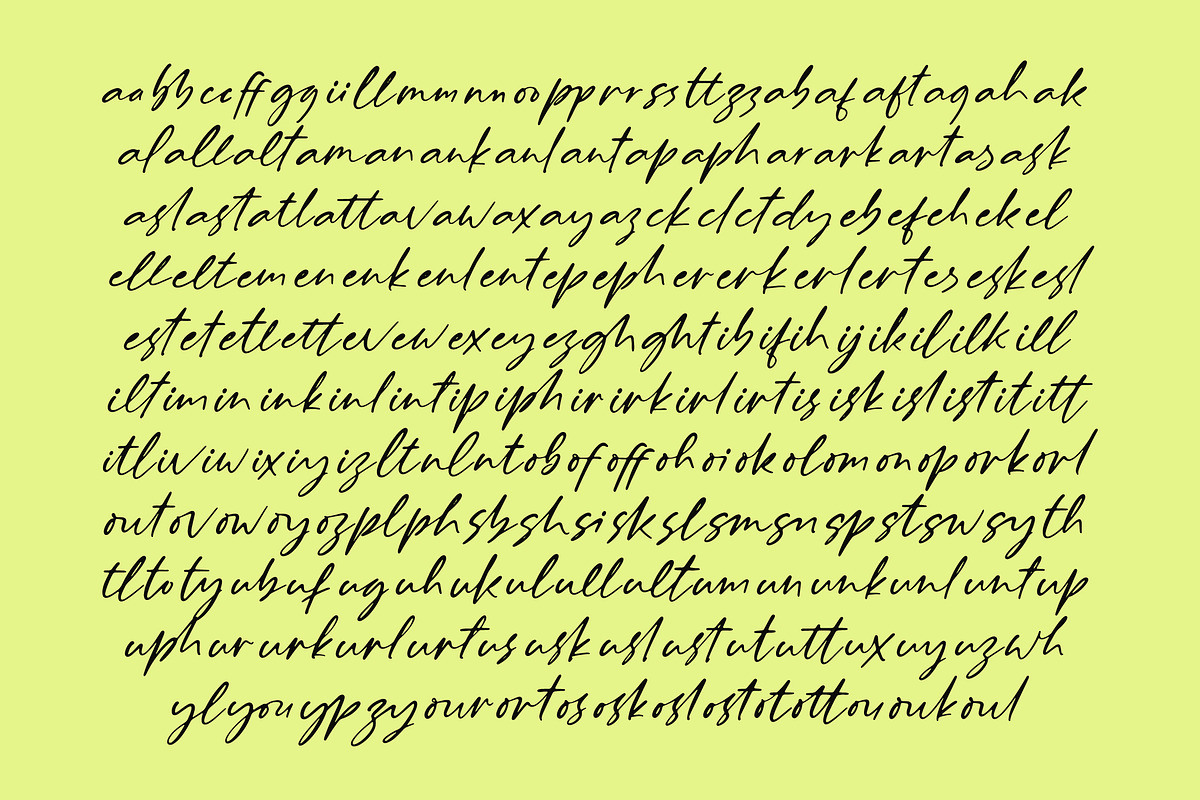 aa bb cc ff gg ii ll mm nn oo pp rr ss tt zz ab af aft ag ah ak
al all alt am an ank anl ant ap aph ar ark art as ask
asl ast at atl att av aw ax ay az ck cl ct dy eb ef eh ek el
ell elt em en enk enl ent ep eph er erk erl ert es esk esl
est et etl ett ev ew ex ey ez gh ght ib if ih ij ik il ilk ill
ilt im in ink inl int ip iph ir irk irl irt is isk isl ist it itt
itl iv iw ix iy iz lt nl nt ob of off oh oi ok ol om on op ork orl
out ov ow oy oz pl ph sb sh si sk sl sm sn sp st sw sy th
tl to ty ub uf ug uh uk ul ull ult um un unk unl unt up
uph ur urk url urt us usk usl ust ut utt ux uy uz wh
yl you yp zy our ort os osk osl ost ot ott ou ouk oul